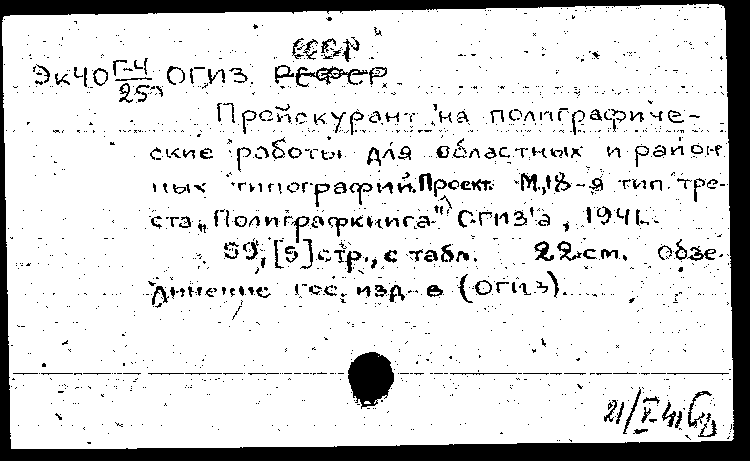 СССР
Эк40 Г-4/25 ОГИЗ. РСФСР.
Прейскурант на полиграфиче-
ские работы для областных и район
ных типографий. Проект. М., 18-я тип. тре-
ста „Полиграфкнига" ОГИЗ'а, 1941.
59, [5] стр., с табл. 22 см. Объе-
динение гос. изд-в (ОГИЗ).
21/V-41